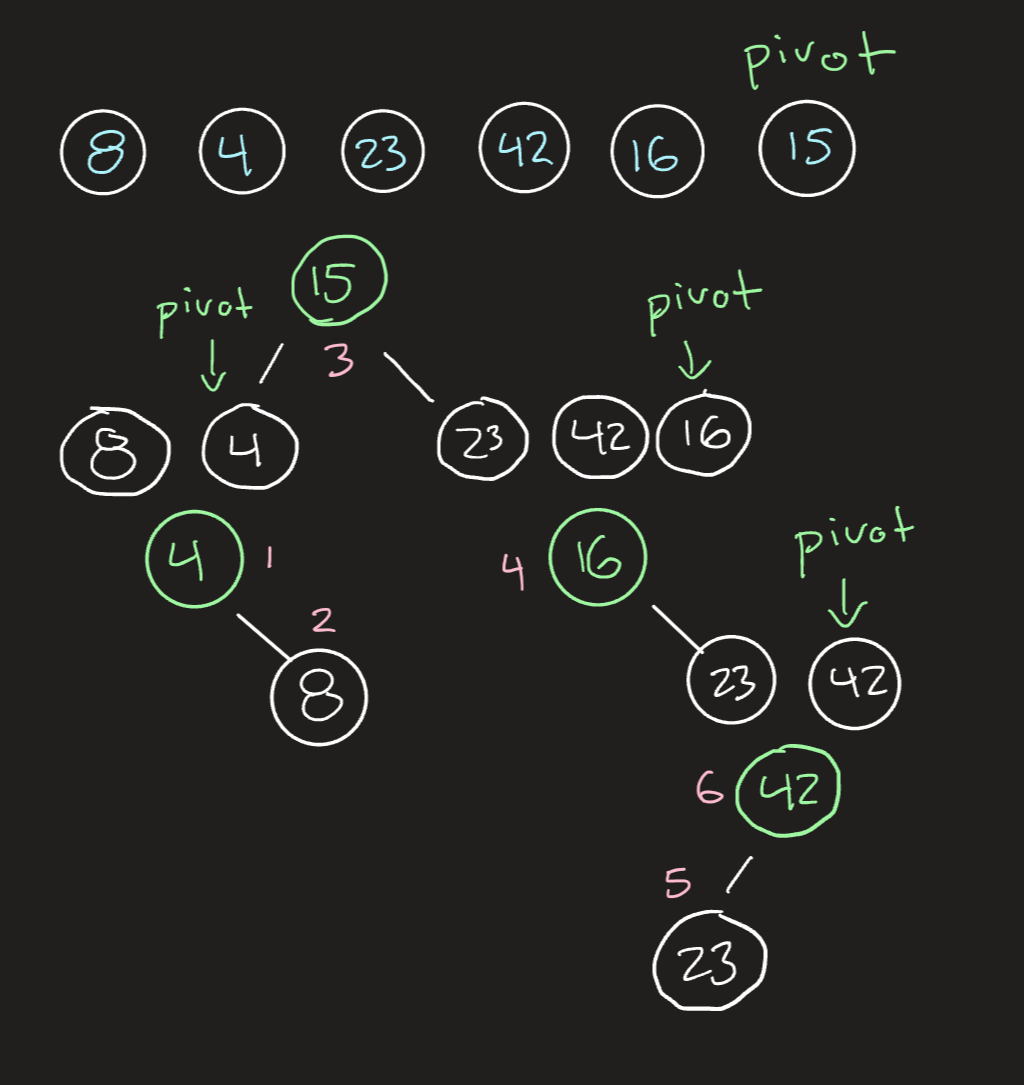 pivot
8 4 23 42 16 15
15
pivot pivot
3
8 4 23 42 16
4 1 4 16 pivot
2
8 23 42
6 42
5
23